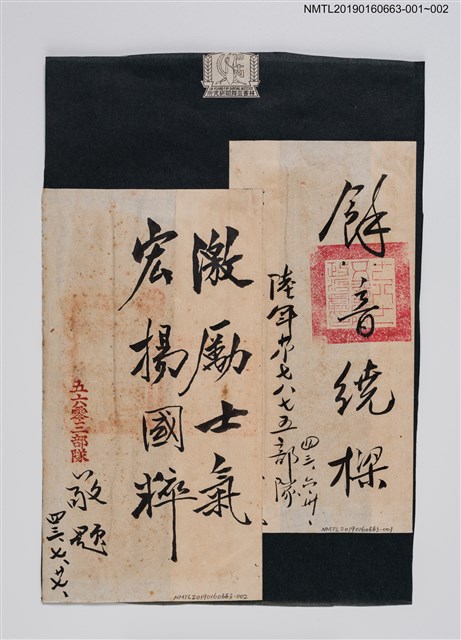 NMTL20190160663-001~002
餘音繞樑
陸軍第七八七五部隊
四三、六、卅、
NMTL20190160663-001
激勵士氣
宏揚國粹
五六零三部隊
敬題
四三、七、廿七、
NMTL20190160663-002